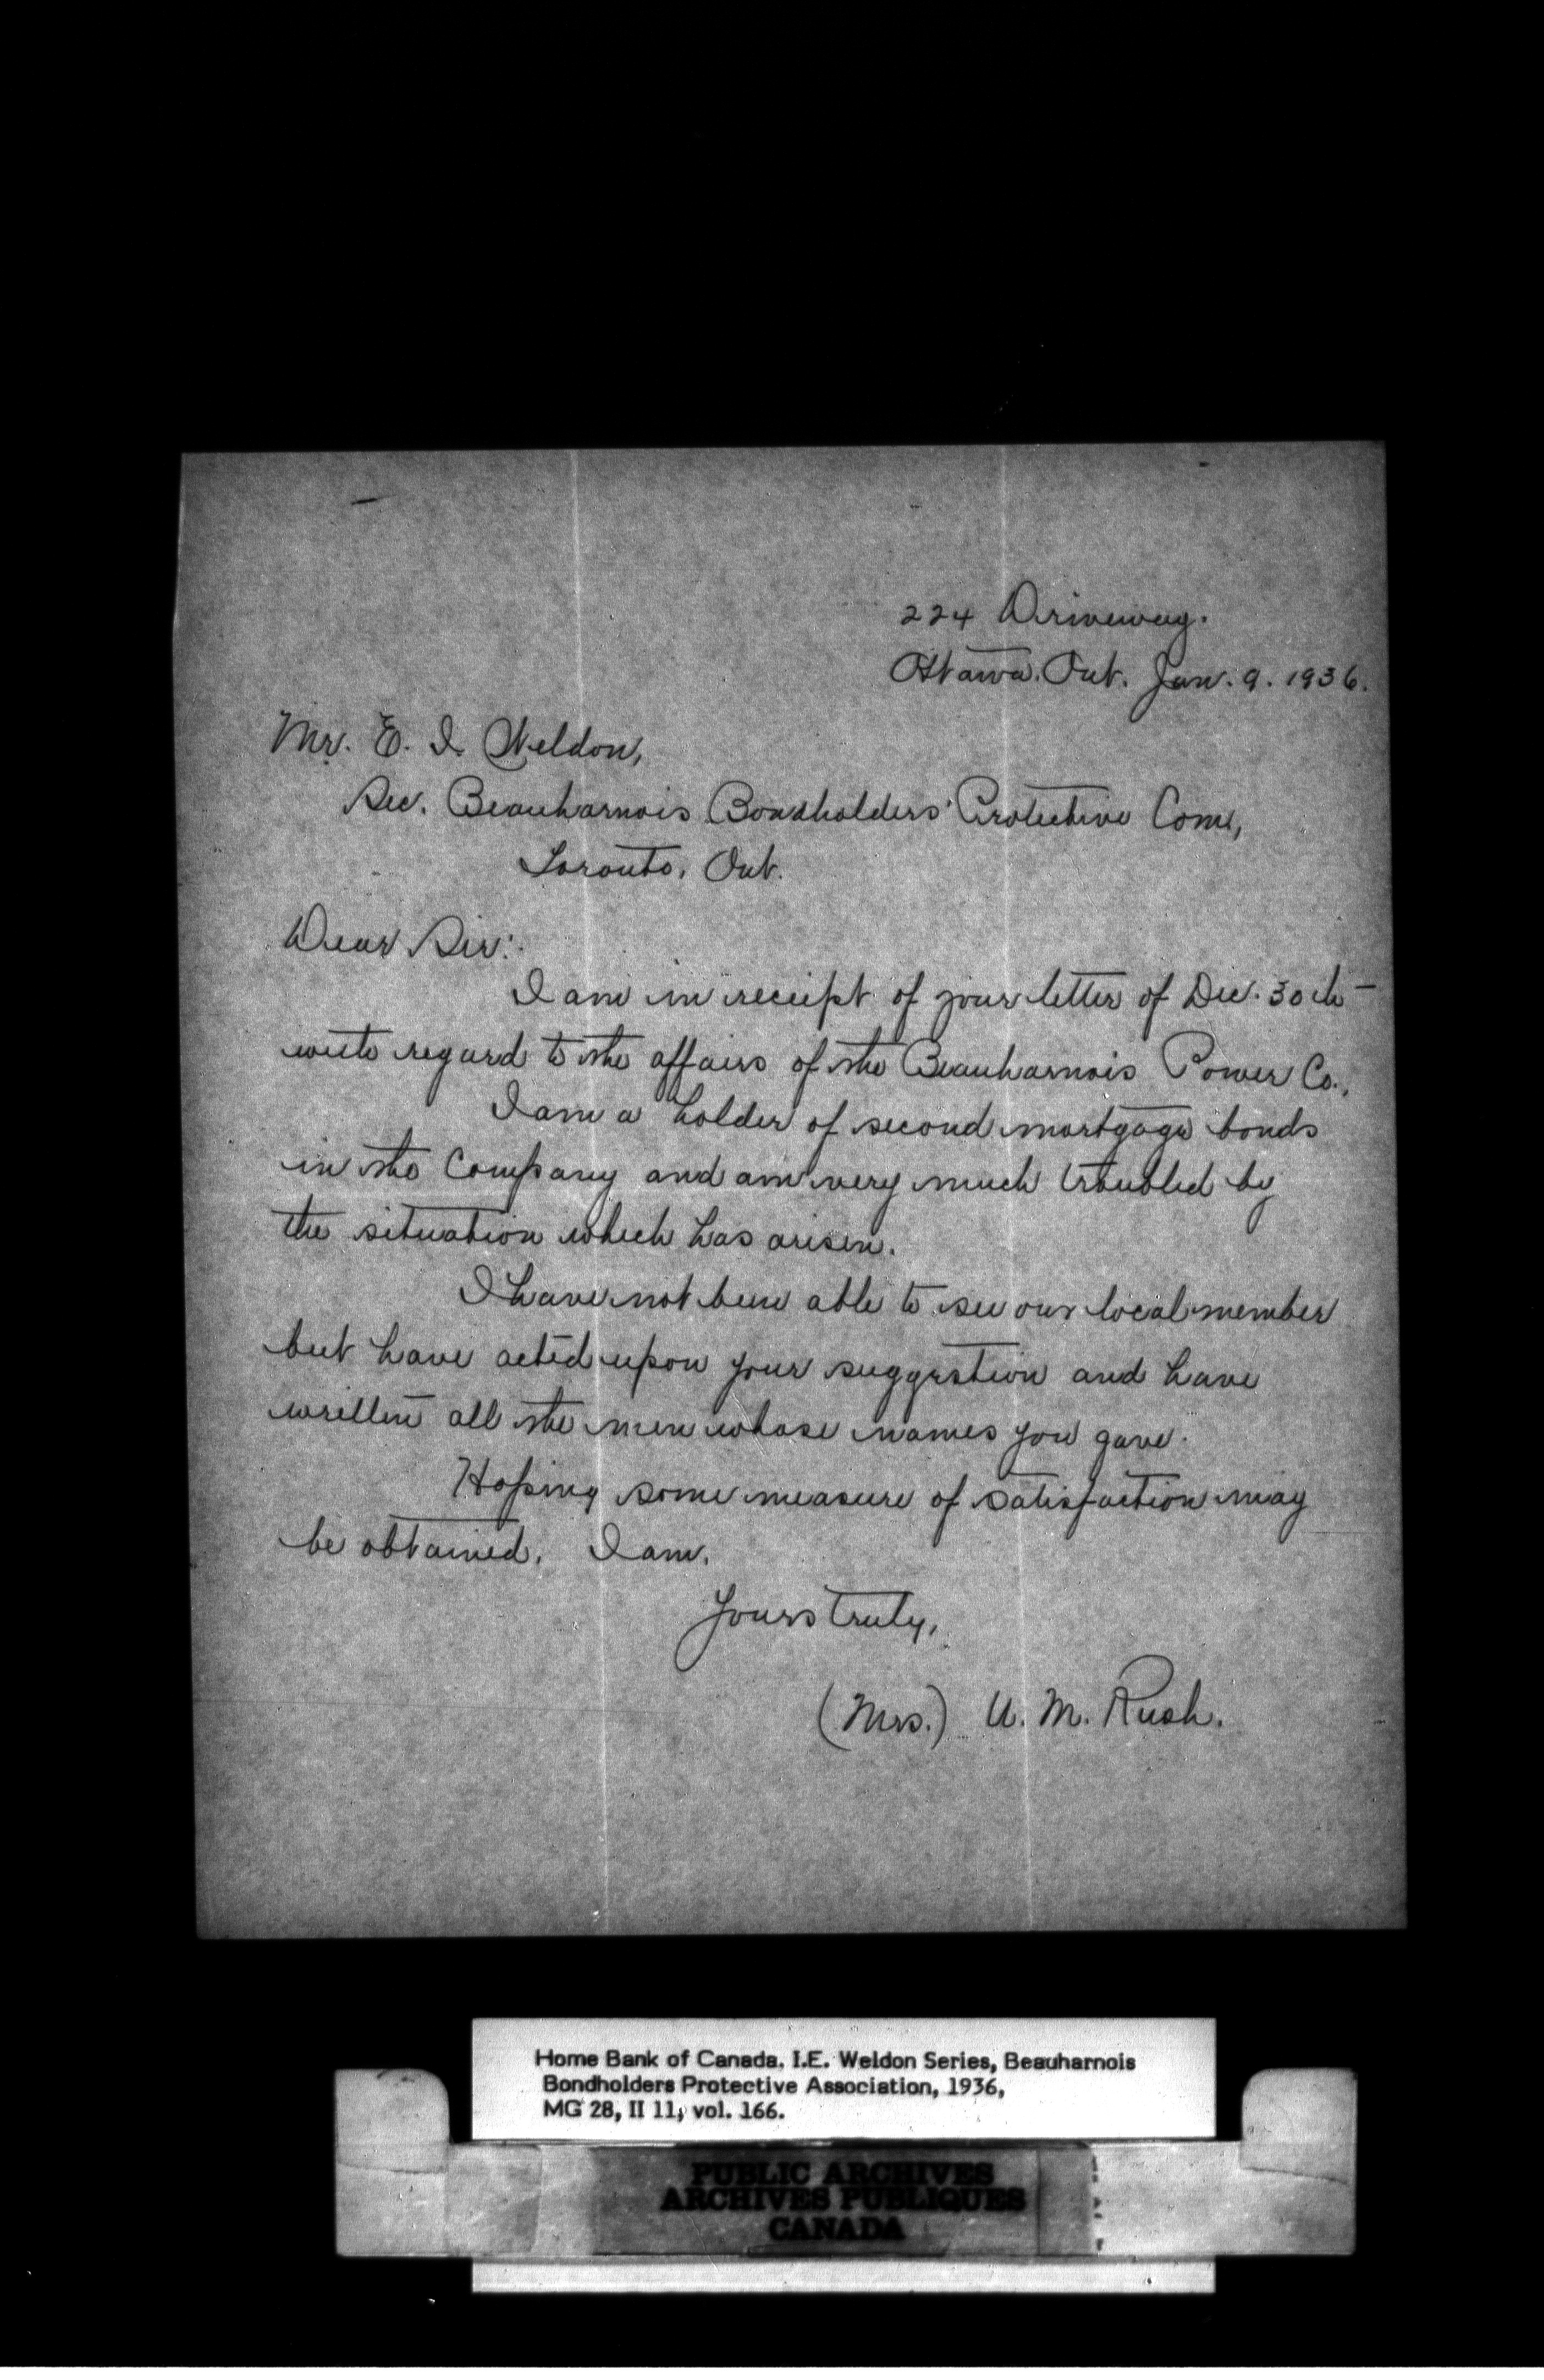 224 Driveway.
Ottawa. Ont. Jan. 9. 1936.
Mr. E. I. Weldon,
Sec. Beauharnois Bondholders' Protective Com.,
Toronto, Ont.
Dear Sir:
I am in receipt of your letter of Dec. 30th
with regard to the affairs of the Beauharnois Power Co.,
I am a holder of second mortgage bonds
in the Company and am very much troubled by
the situation which has arisen.
I have not been able to see our local member
but have acted upon your suggestion and have
written all the men whose names you gave.
Hoping some measure of satisfaction may
be obtained. I am.
Yours truly,
(Mrs.) U. M. Rush.
Home Bank of Canada. I.E. Weldon Series, Beauharnois
Bondholders Protective Association, 1936,
MG 28, II 11, vol. 166.
PUBLIC ARCHIVES
ARCHIVES PUBLIQUES
CANADA